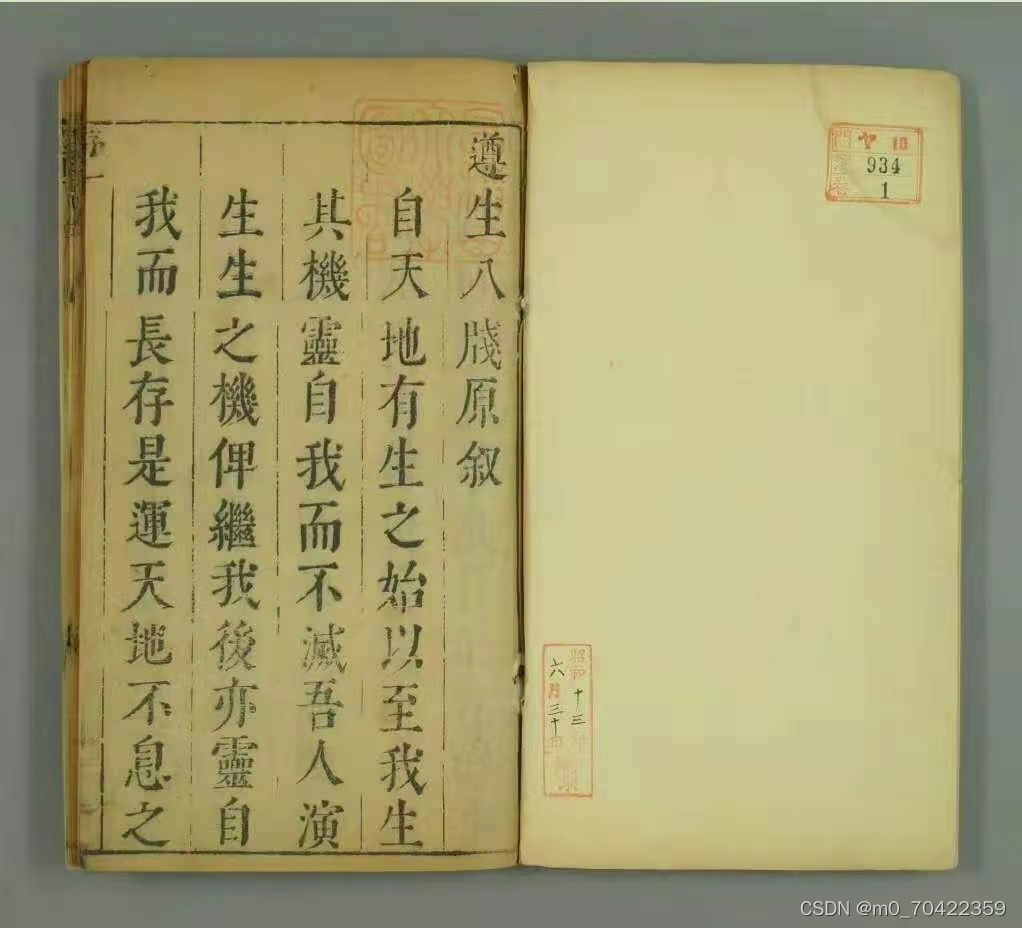 門 ヤ 10
934
1
昭和十三年
六月三十日
遵生八牋原叙
自天地有生之始以至我生
其機靈自我而不滅吾人演
生生之機俾繼我後亦靈自
我而長存是運天地不息之
序一
CSDN @m0_70422359